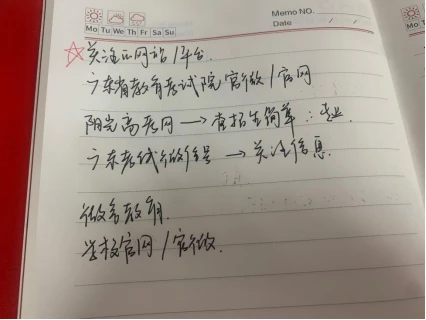 Memo NO.
Mo Tu We Th Fr Sa Su
Date / /
☆关注的网站/平台.
广东省教育考试院官微/官网
阳光高考网→查招生简章:专业.
广东考试微信号→关注信息.
微言教育.
学校官网/官微.